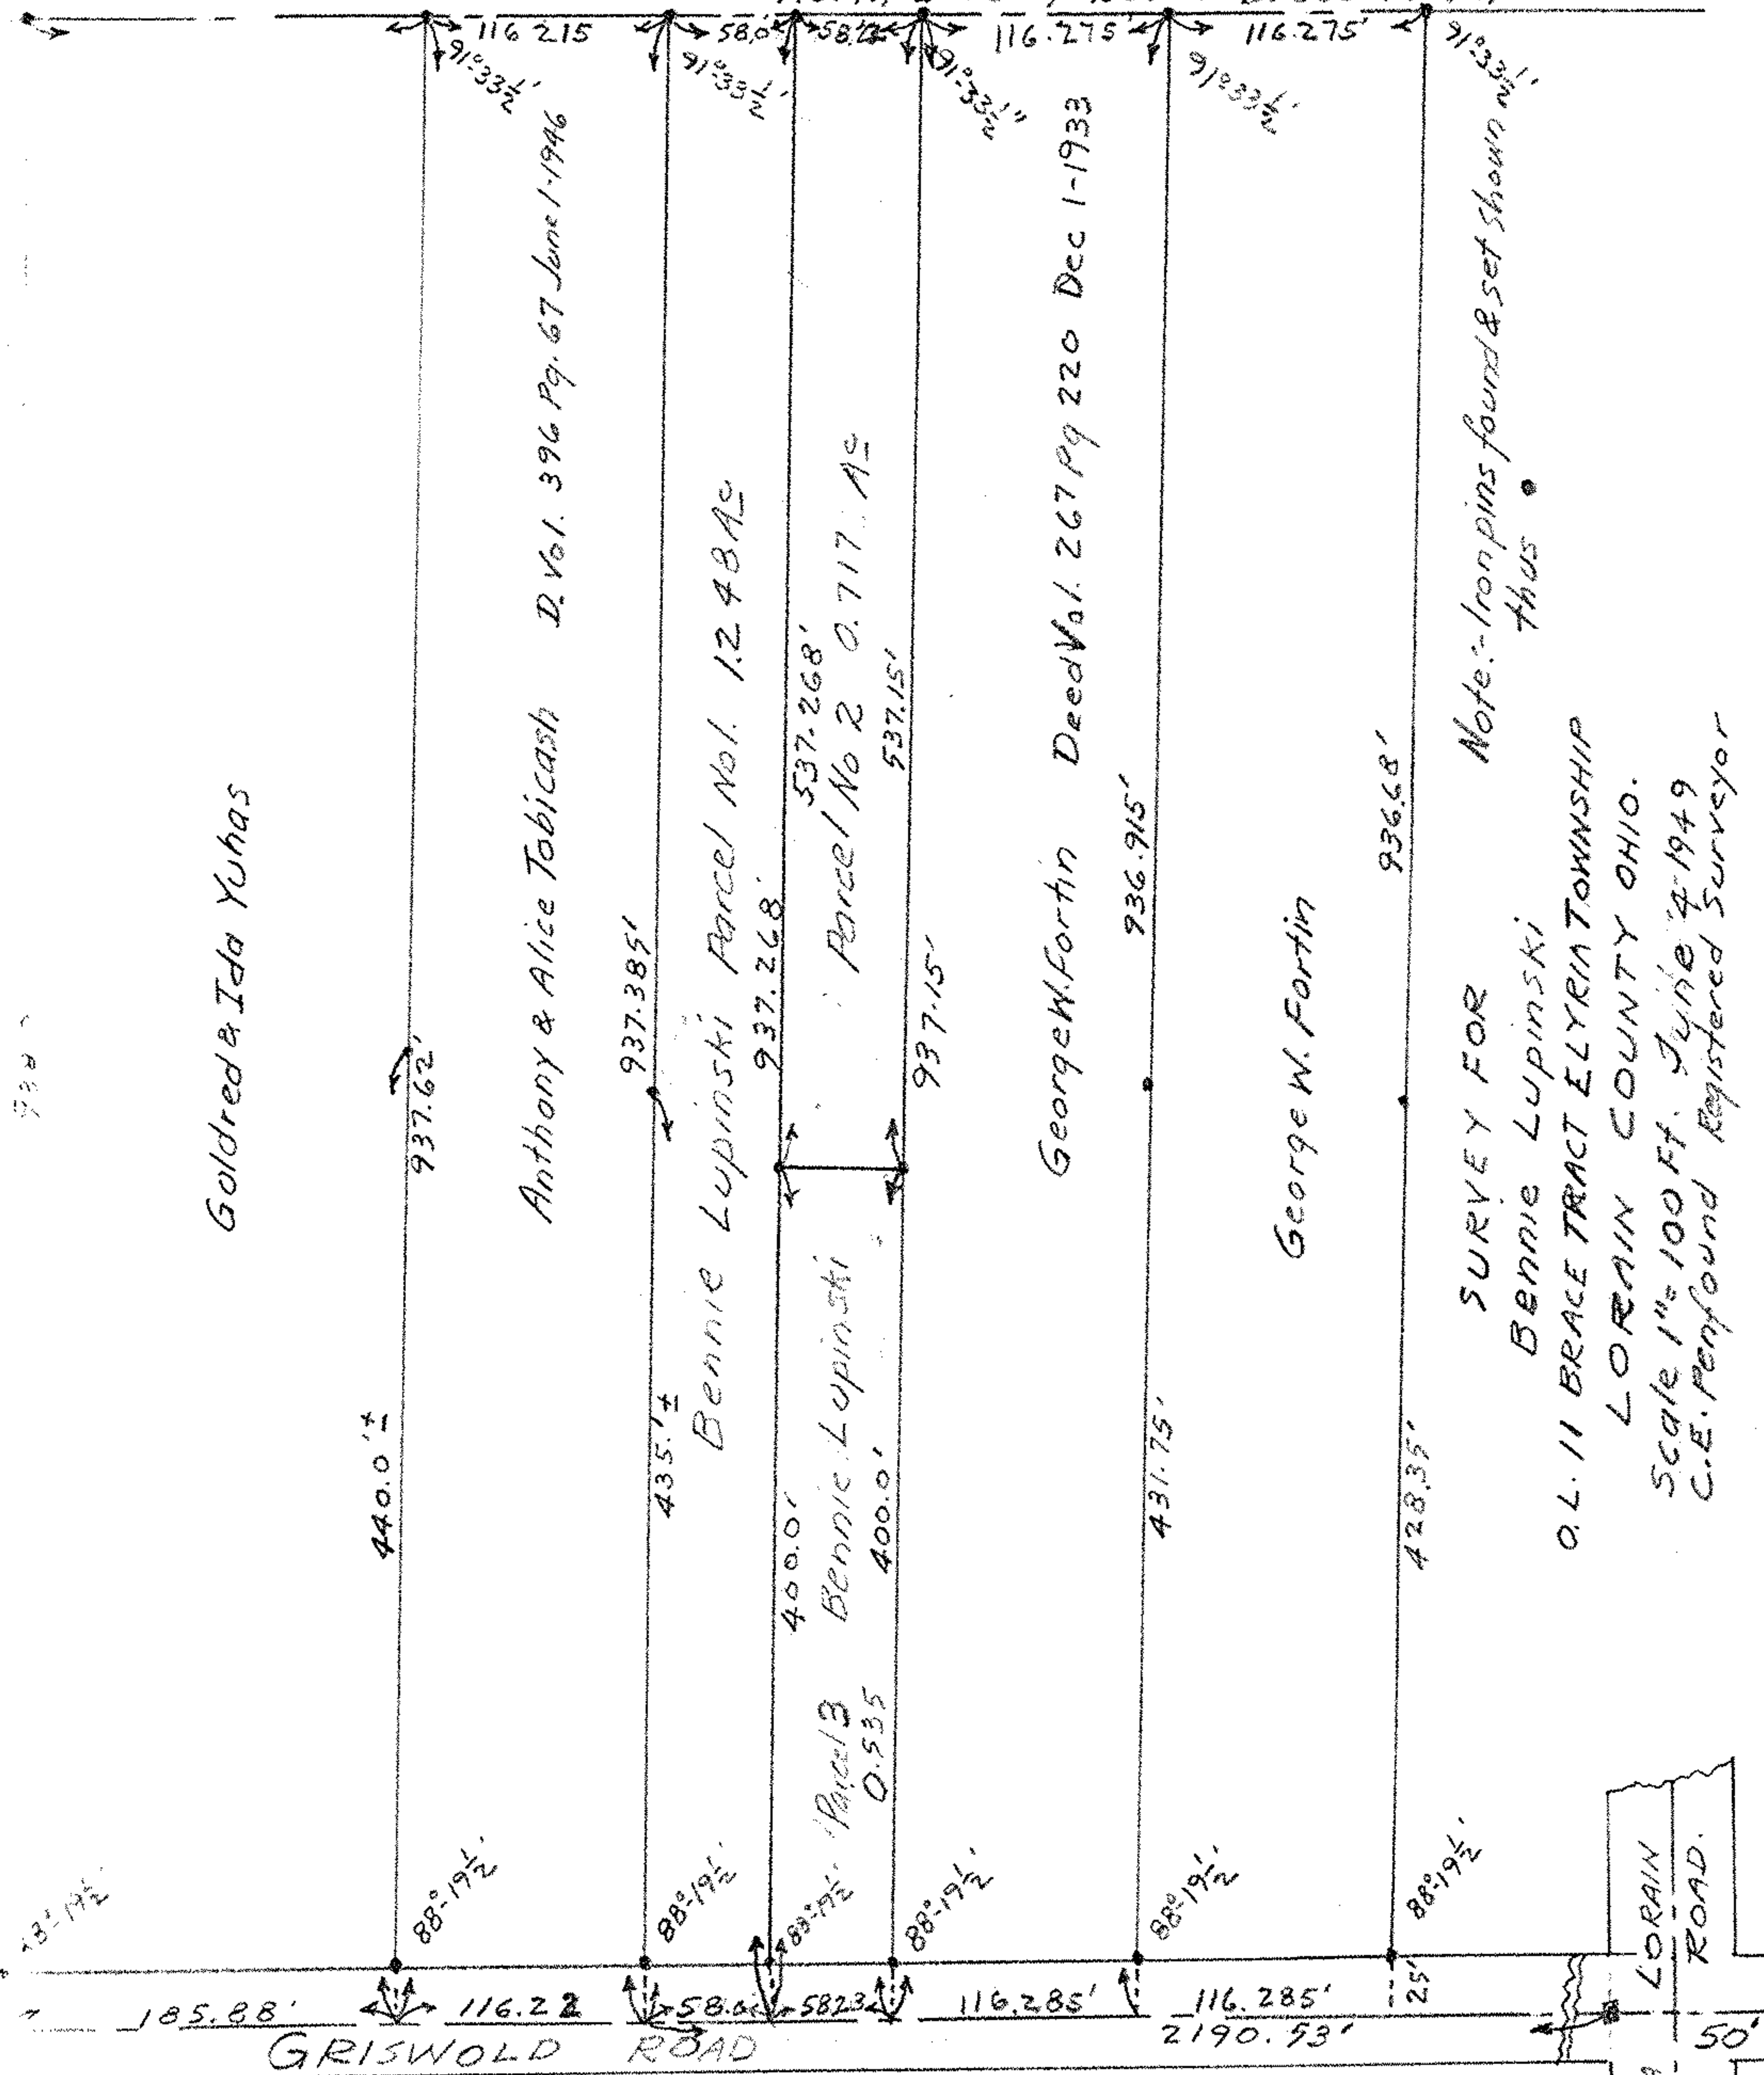 116.215
58.0'
58.23
116.275'
116.275'
91°33½'
91°33½'
91°33½'"
91°33½'
91°33½'
Goldred & Ida Yuhas
937.62'
440.0'±
Anthony & Alice Tobicash D. Vol. 396 Pg. 67 June 1-1946
937.385'
435.'±
Bennie Lupinski Parcel No1. 1.248 Ac
937.268'
537.268'
Parcel No 2 0.717 Ac
537.15'
937.15'
400.0'
Parcel 3 Bennie Lupinski
0.535
400.0'
George W. Fortin Deed Vol. 267 Pg 220 Dec 1-1933
936.915'
431.75'
George W. Fortin
936.68'
428.35'
Note:- Iron pins found & set shown
thus
SURVEY FOR
Bennie Lupinski
O.L. 11 BRACE TRACT ELYRIA TOWNSHIP
LORAIN COUNTY OHIO.
Scale 1"= 100 Ft. June 4-1949
C.E. Penfound Registered Surveyor
88°-19½'
88°-19½'
88°-19½'
88°-19½'
88°-19½'
88°-19½'
185.88'
116.22
58.0
58.23
116.285'
116.285'
25'
2190.53'
GRISWOLD ROAD
LORAIN
ROAD.
50'